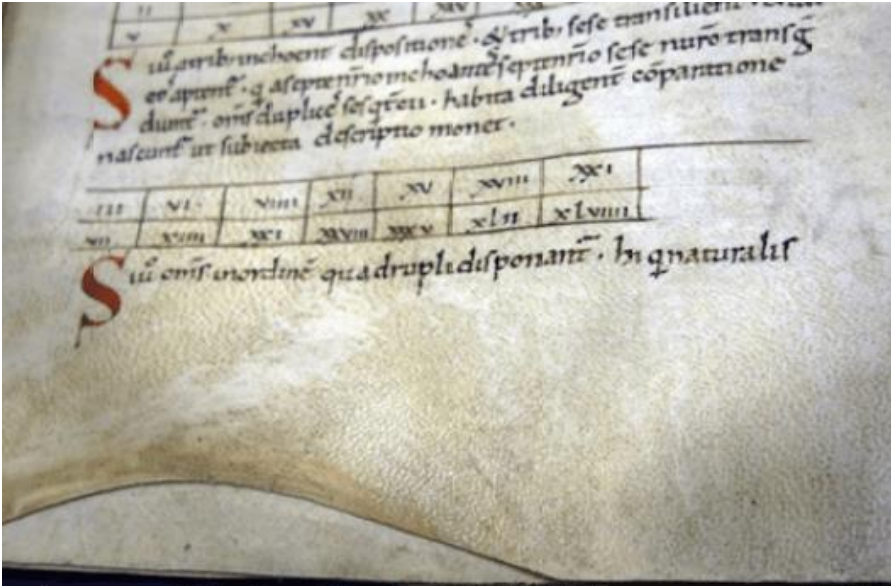 ii
v x xv xx xxv
Siũ a trib; inchoent dispositionẽ · & trib; sese transilient
eis aptent̃ · q̃ a septenrĩo inchoantes septenrĩo sese nuṁro transg̃
diunt̃ · om̃s duplices sesq̃teri · habita diligenti cõparatione
nascunt̃ ut subiecta descriptio monet ·
iii vi viiii xii xv xviii xxi
vii xiiii xxi xxviii xxxv xlii xlviiii
Siũ om̃s in ordinẽ quadrupli disponant̃ · hi q̃ naturalis